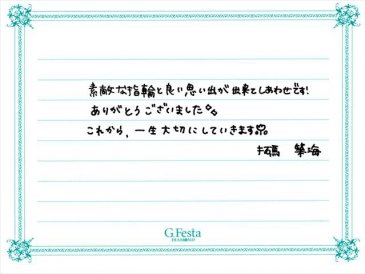 素敵な指輪と良い思い出が出来てしあわせです!
ありがとうございました
これから、一生大切にしていきます
G.Festa
DIAMOND